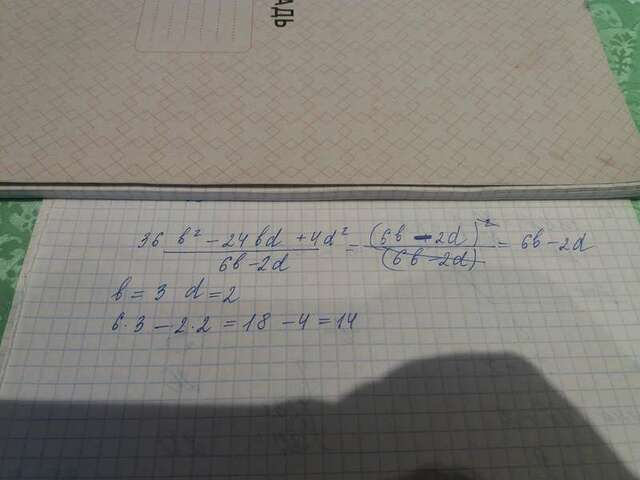 АДЬ
36 b² - 24bd + 4d² / 6b - 2d = (6b - 2d)² / (6b - 2d) = 6b - 2d
b = 3 d = 2
6·3 - 2·2 = 18 - 4 = 14